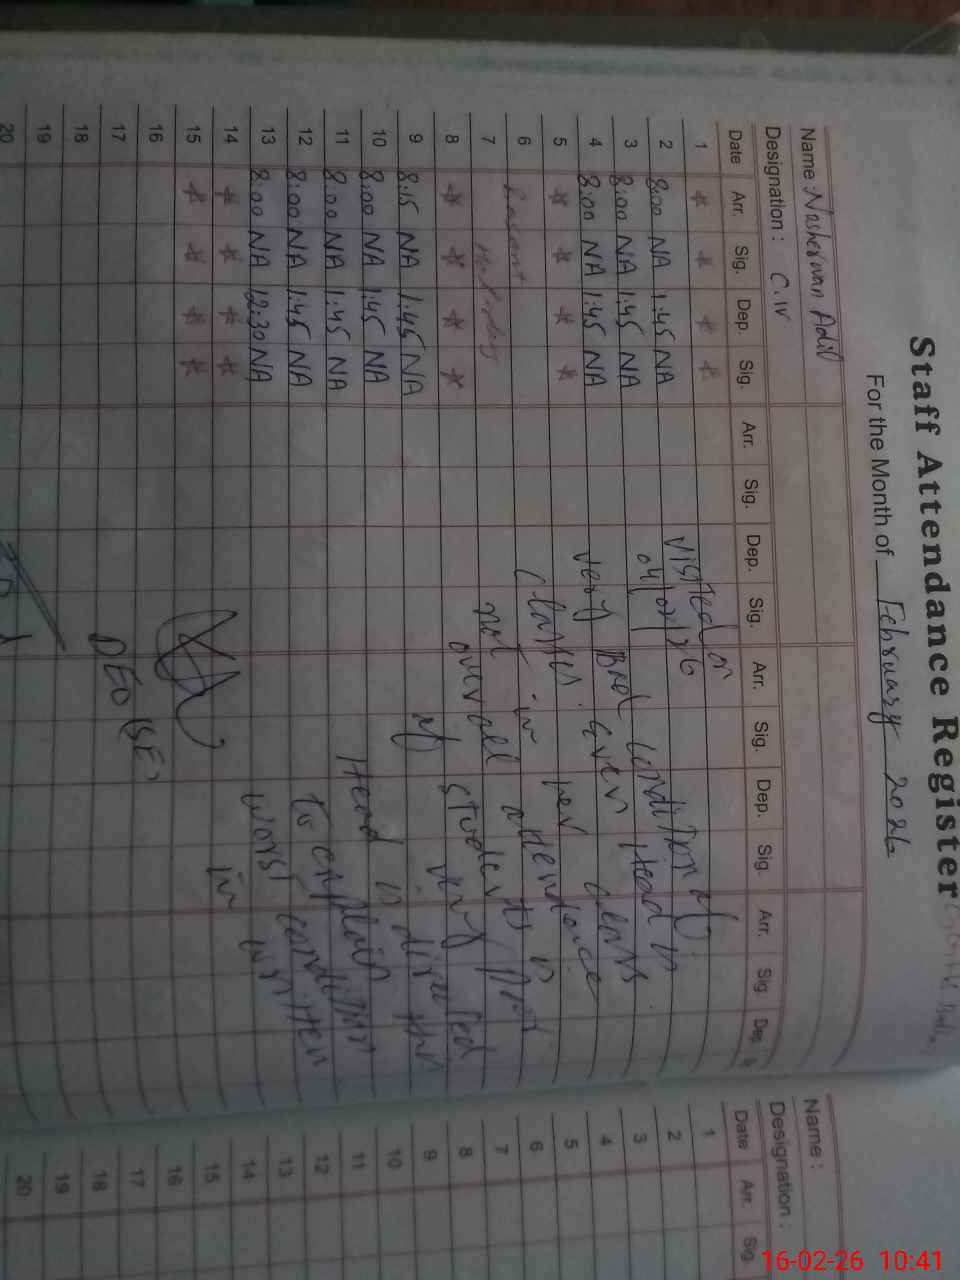 Staff Attendance Register
For the Month of February 2026
Name : Nasherwan Adil
Designation : C.IV
Date Arr. Sig. Dep. Sig. Arr. Sig. Dep. Sig. Arr. Sig. Dep. Sig. Arr. Sig. Dep.
1 * * * *
2 8:00 NA 1:45 NA
3 8:00 NA 1:45 NA
4 8:00 NA 1:45 NA
5 * * * *
6 Basant
7 Holiday
8 * * * *
9 8:15 NA 1:45 NA
10 8:00 NA 1:45 NA
11 8:00 NA 1:45 NA
12 8:00 NA 1:45 NA
13 8:00 NA 12:30 NA
14 * * * *
15 * * * *
16
17
18
19
20
visited on
condition of
very Bad even Head is
Classes. per class
not in attendance
overall students is not
of very
Head is directed
to explain the
worst condition
in written
DEO (SE)
Name :
Designation :
Date Arr. Sig
1
2
3
4
5
6
7
8
9
10
11
12
13
14
15
16
17
18
19
20
16-02-26 10:41